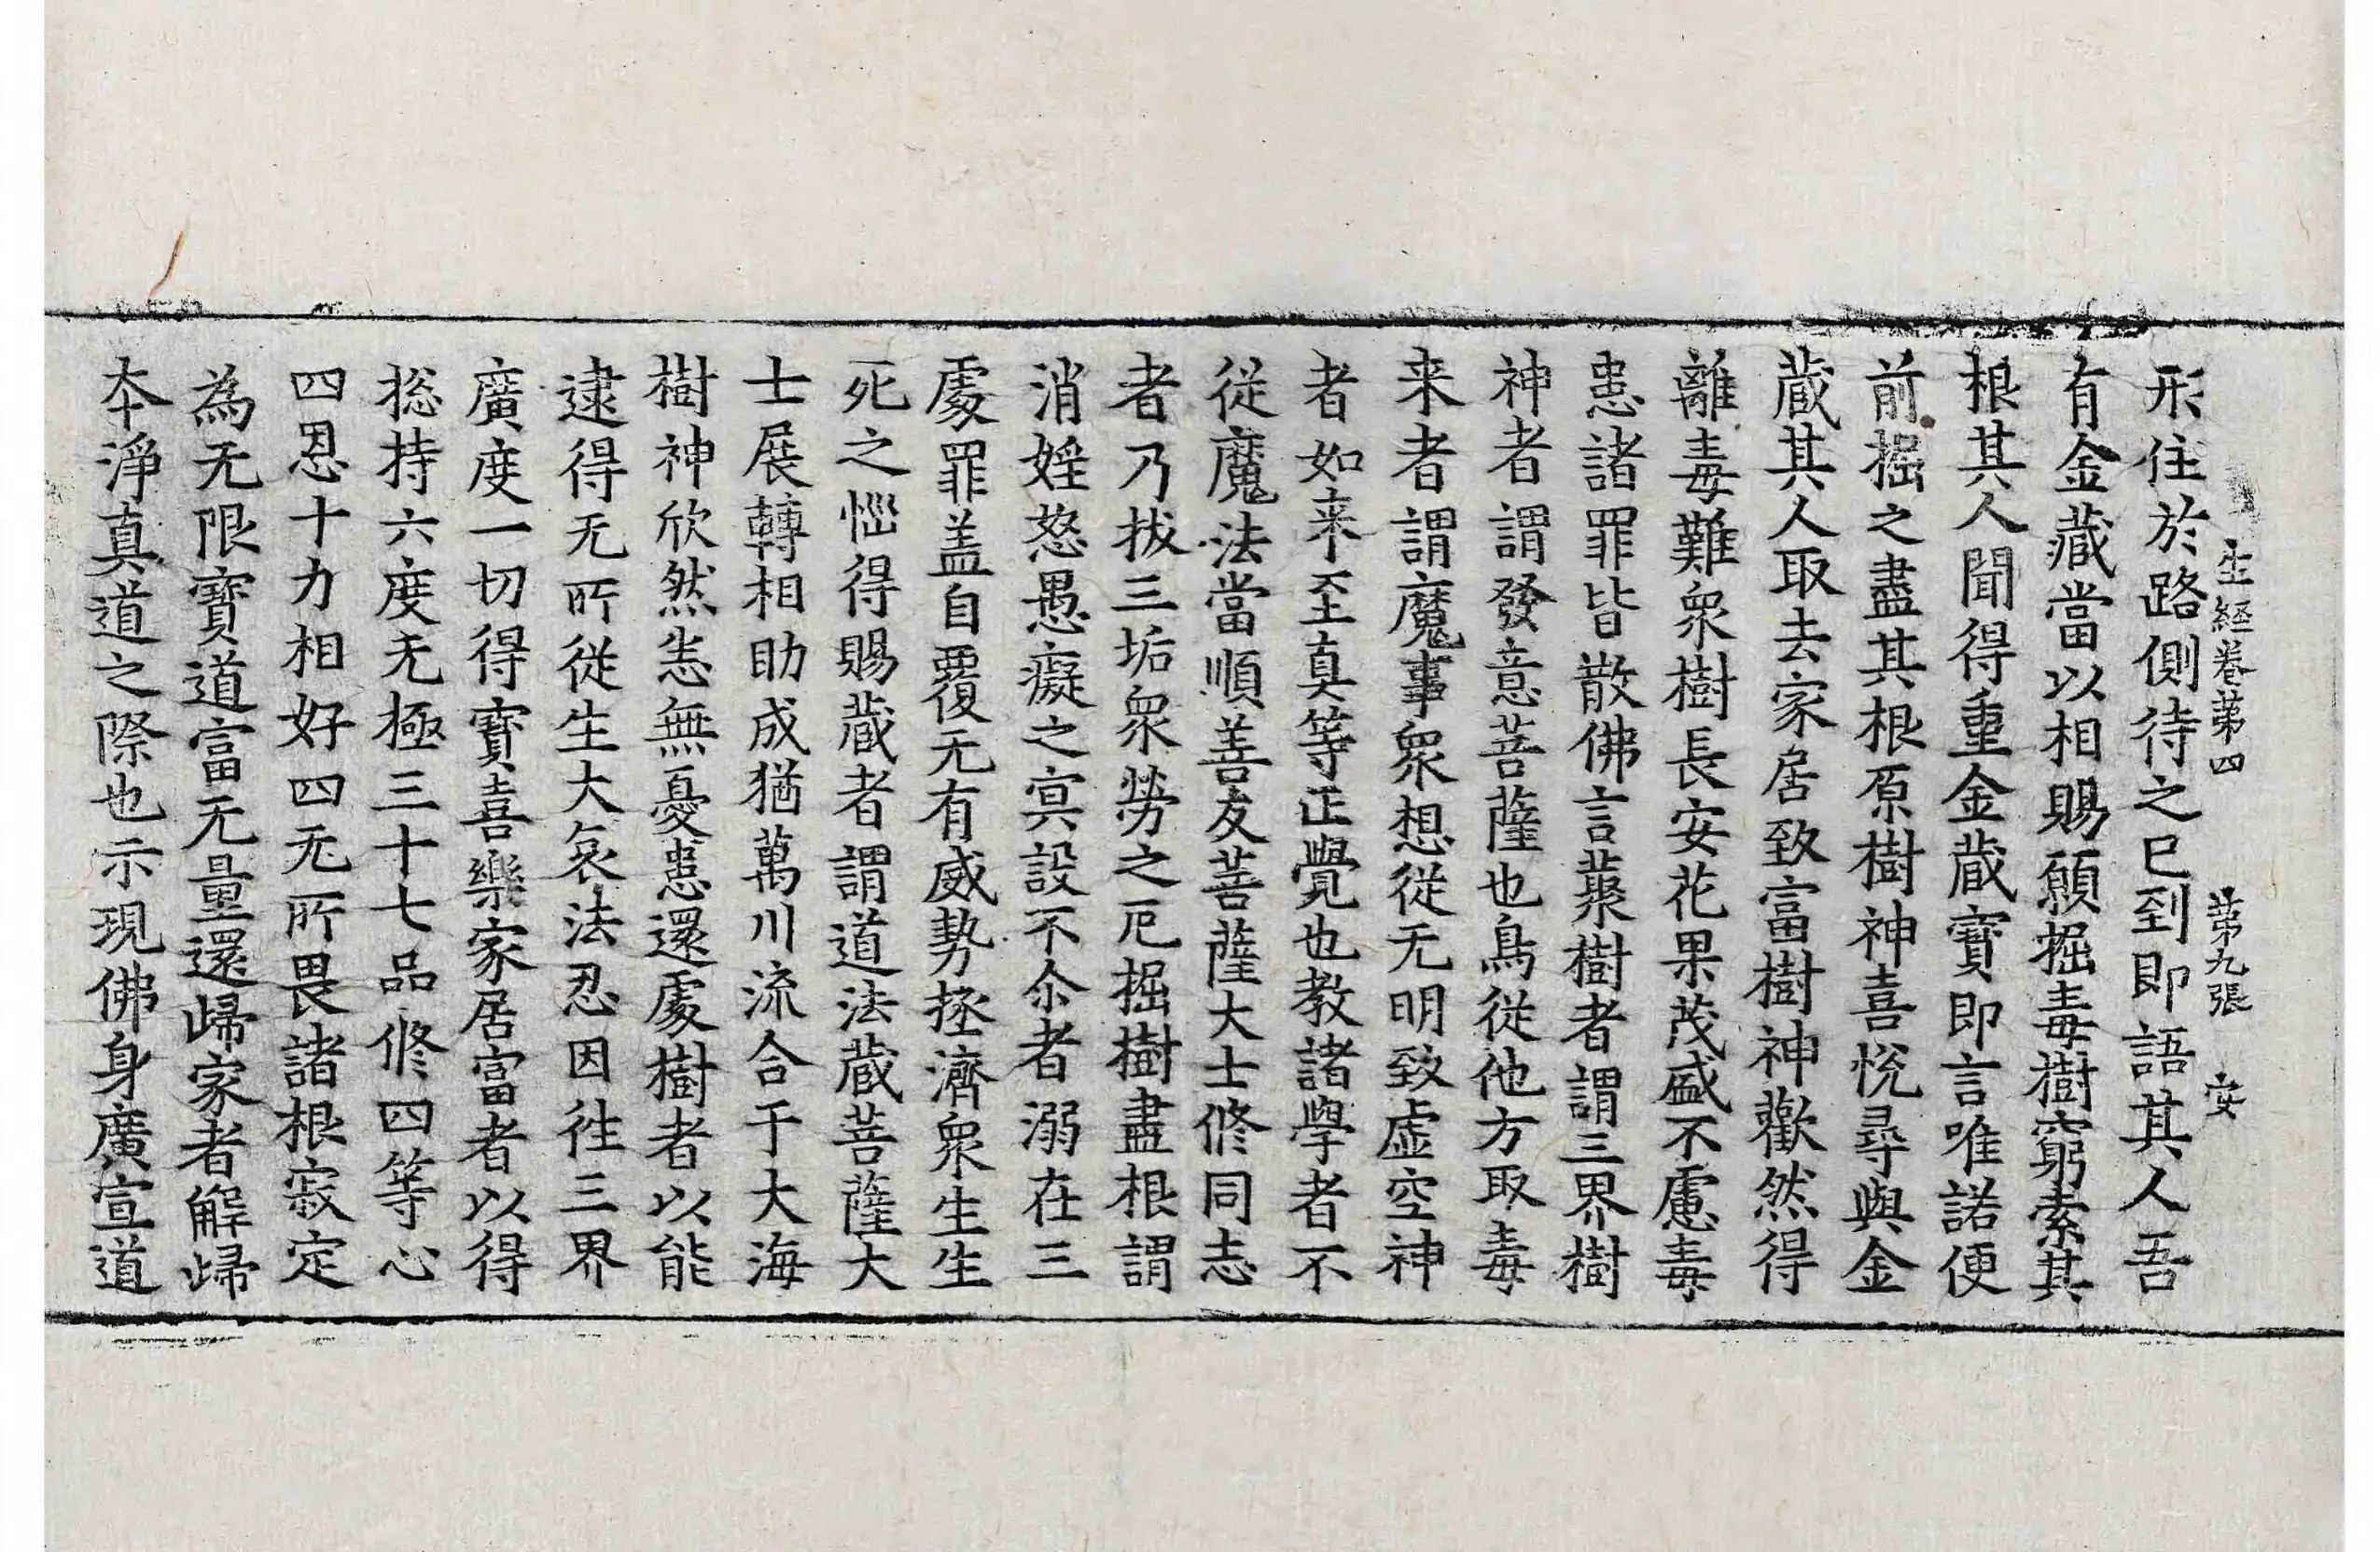 生経卷苐四 苐九張 安
形住於路側待之已到即語其人吾
有金藏當以相賜願掘毒樹窮索其
根其人聞得重金蔵寶即言唯諾便
前掘之盡其根原樹神喜恱尋與金
蔵其人取去家居致富樹神歡然得
離毒難衆樹長安花果茂盛不慮毒
患諸罪皆散佛言藂樹者謂三界樹
神者謂發意菩薩也鳥從他方取毒
来者謂魔事衆想從无明致虚空神
者如来至真等正覺也教諸學者不
從魔法當順善友菩薩大士修同志
者乃拔三垢衆勞之厄掘樹盡根謂
消婬怒愚癡之㝠設不尒者溺在三
處罪盖自覆无有威勢拯濟衆生生
死之惱得賜蔵者謂道法蔵菩薩大
士展轉相助成猶萬川流合于大海
樹神欣然恙無憂患還處樹者以能
逮得无所從生大哀法忍因往三界
廣度一切得寶喜樂家居富者以得
捴持六度无極三十七品修四等心
四恩十力相好四无所畏諸根寂定
為无限寶道富无量還歸家者解歸
夲淨真道之際也示現佛身廣宣道